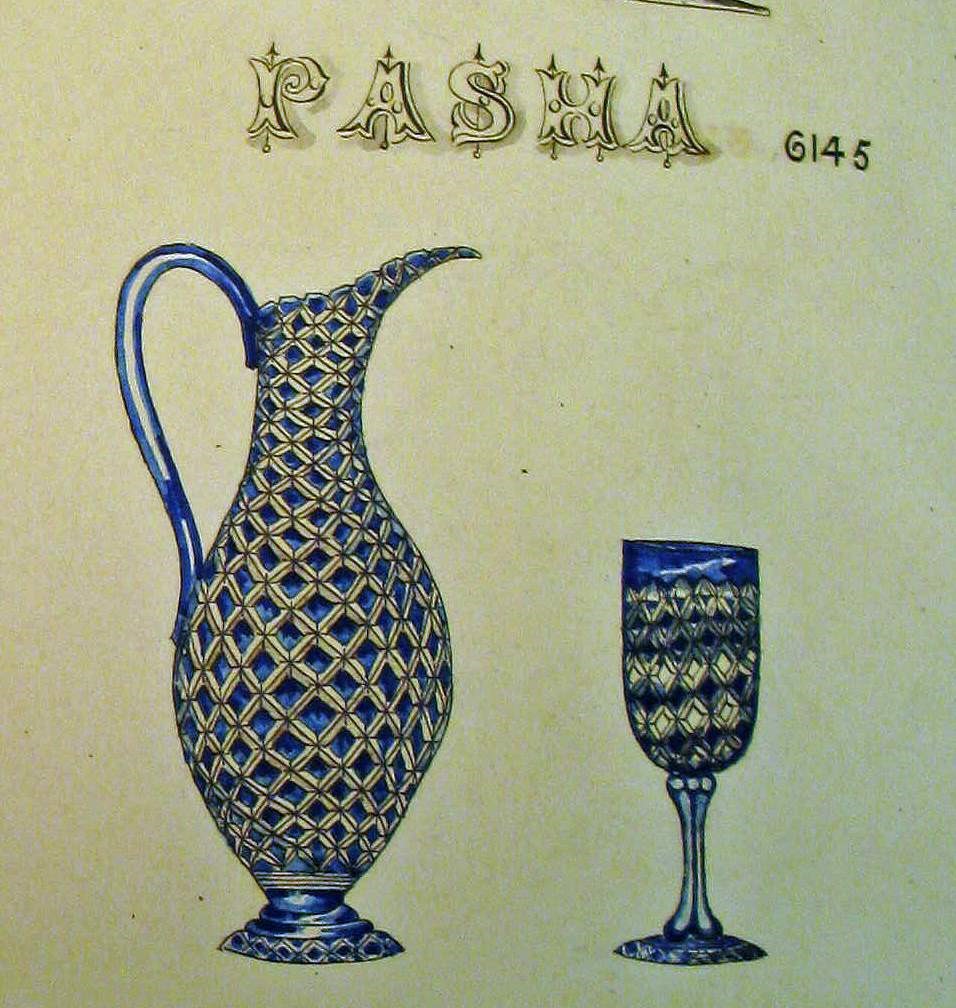 PASHA
6145